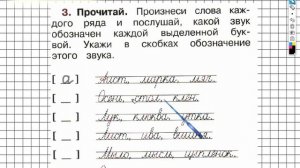 3. Прочитай. Произнеси слова каж-
дого ряда и послушай, какой звук
обозначен каждой выделенной бук-
вой. Укажи в скобках обозначение
этого звука.
[ а ] Аист, марка, мяч.
[ _ ] Осень, стол, клён.
[ _ ] Лук, клюква, утка.
[ _ ] Лист, ива,
[ _ ] Мыло, мысль, цыплёнок.